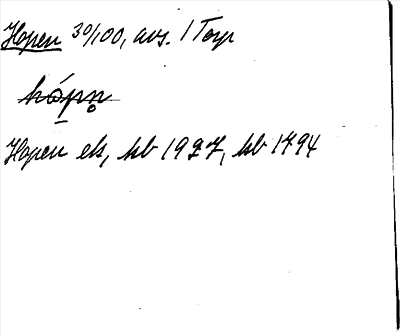 Hopen 30/100, avs. 1 Torp
hópn̥
Hopen ek, kb 1927, kb 1794